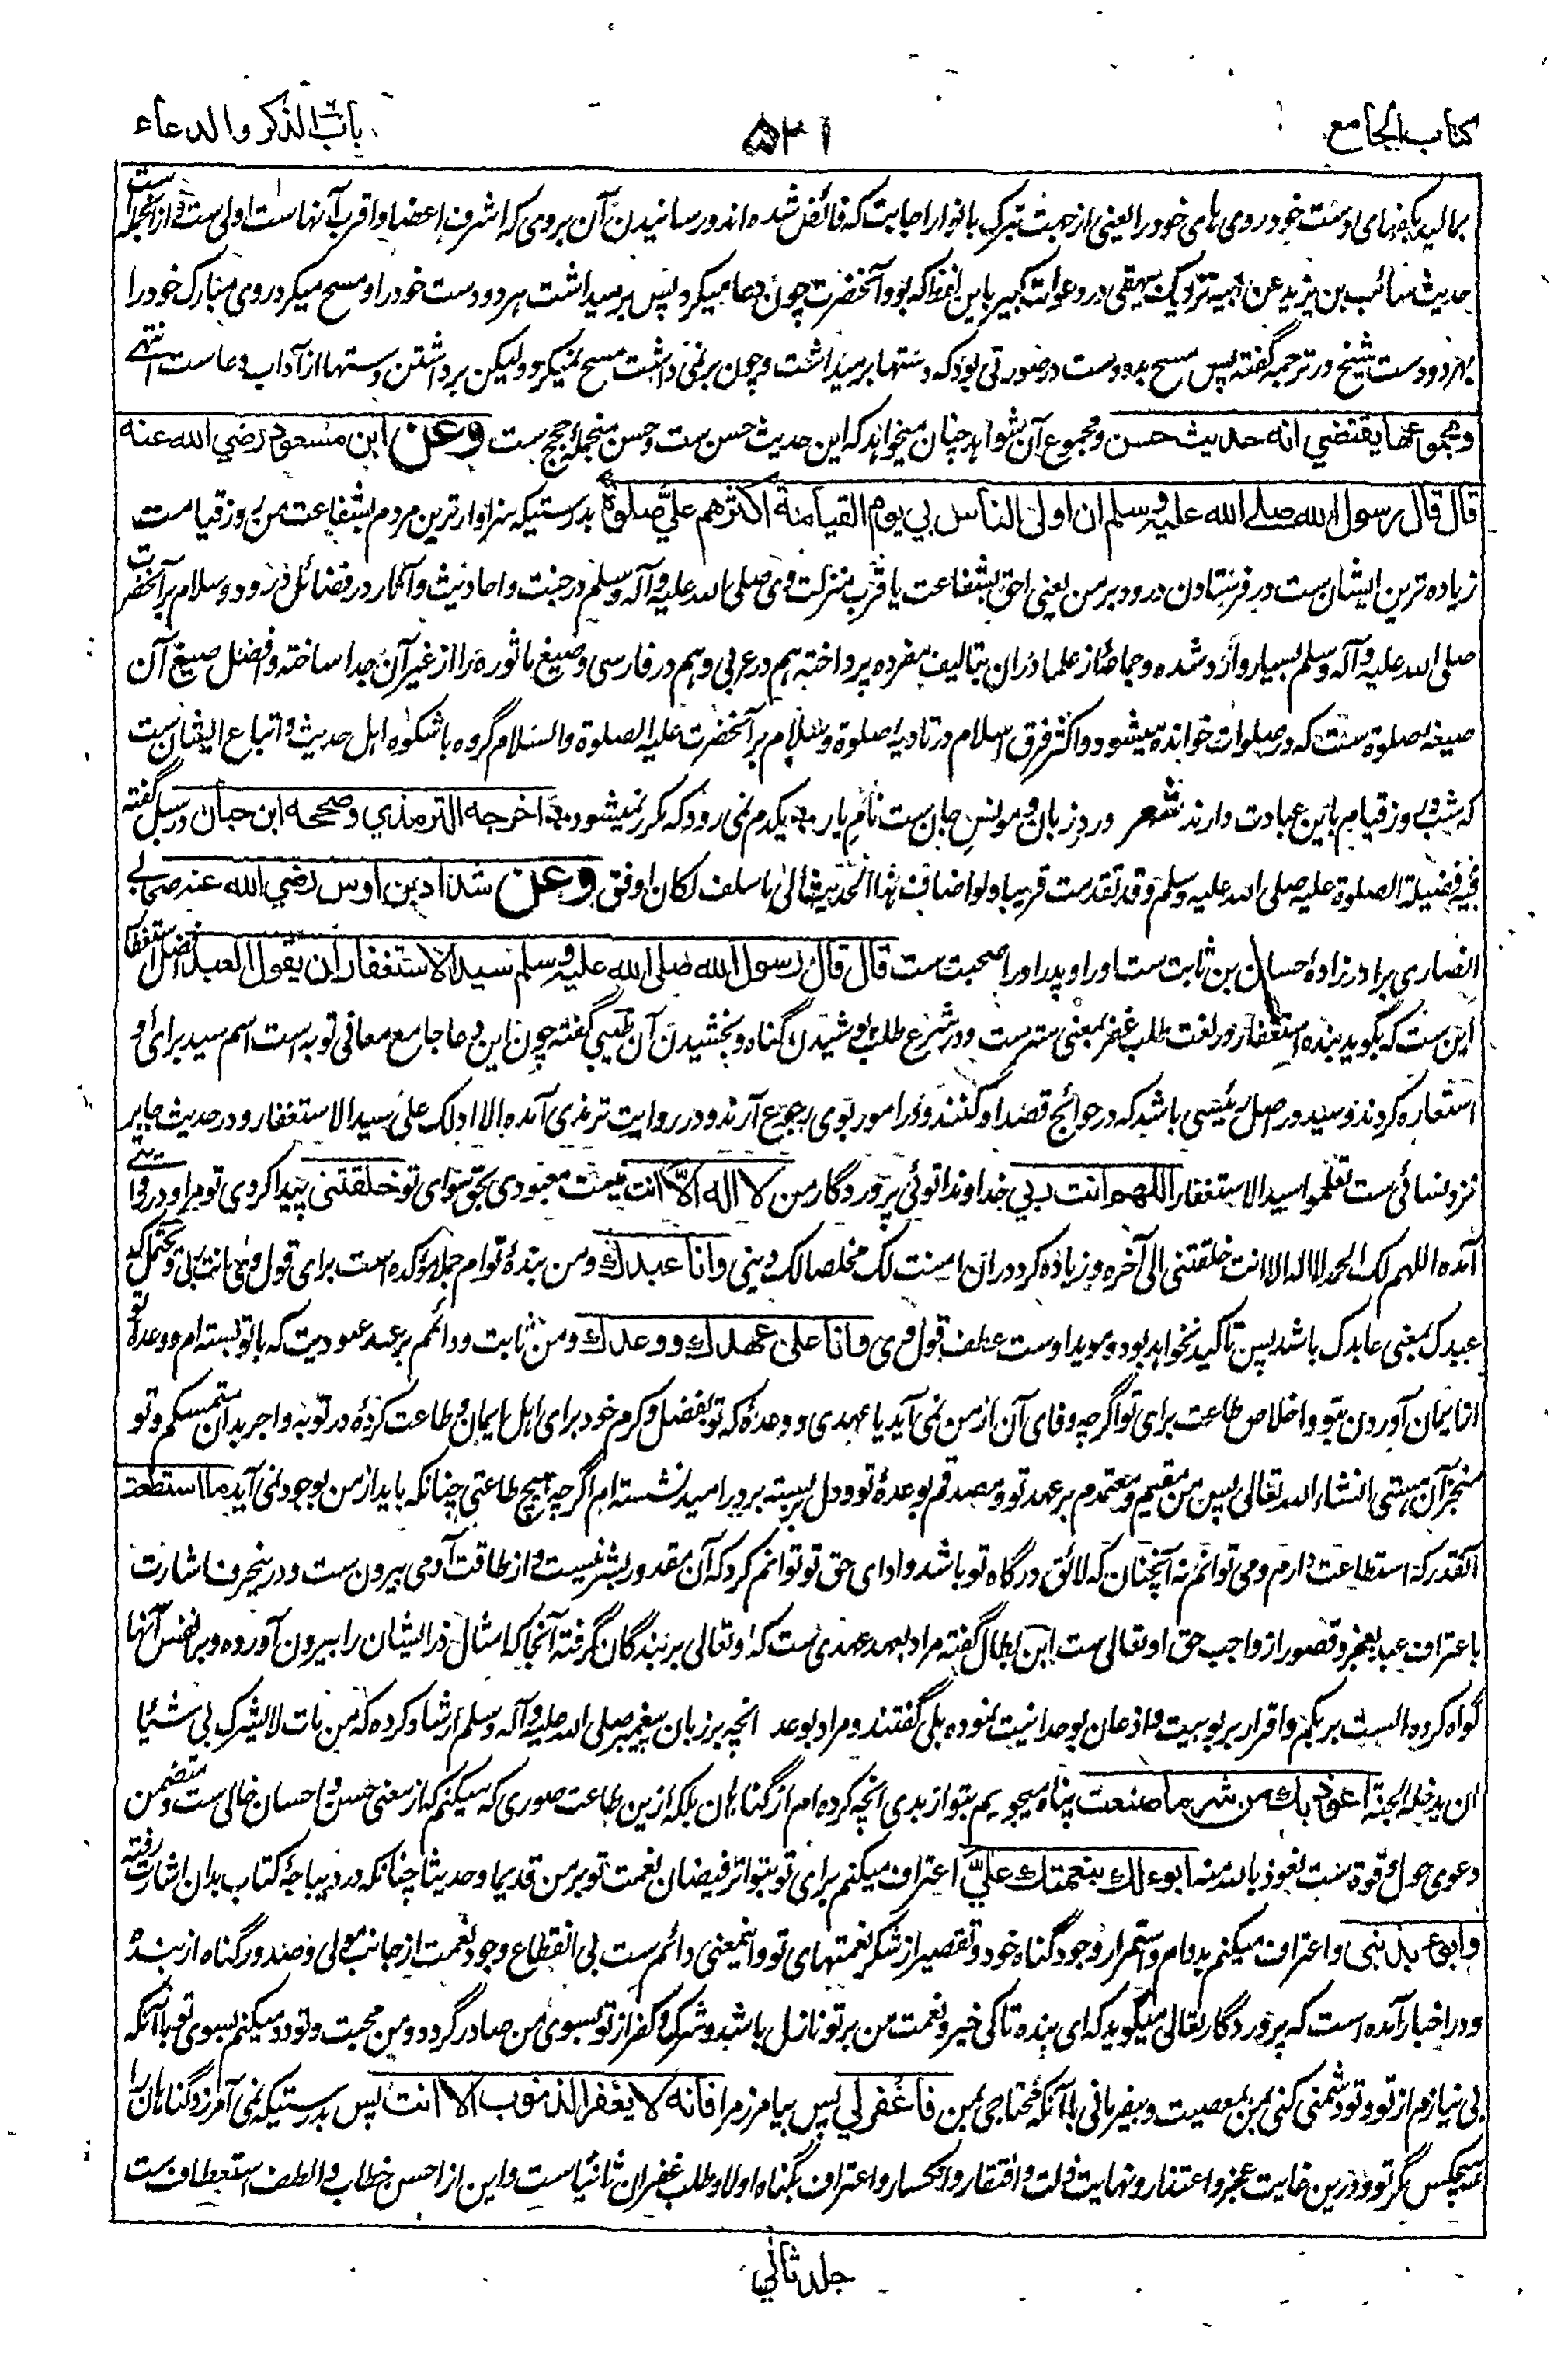 کتاب الجامع
۵۲۱
باب الذکر والدعاء
بمالید یکدیگر دست خود روی های خود را یعنی از جهت تبرک بانوار اجابت که فائض شده اند و رسانیدن آن بروی که اشرف اعضا و اقرب آنهاست اولی ست و از انجمله است
حدیث سائب بن یزید عن ابیه نزدیک بیهقی در دعوات کبیر باین لفظ که بود آنحضرت چون دعا میکرد پس برمیداشت هر دو دست خود را و مسح میکرد روی مبارک خود را
بهر دو دست شیخ در ترجمه گفته پس مسح بدو دست در صورتی بود که دستها برمیداشت و چون برنمی داشت مسح نمیکرد ولیکن برداشتن دستها از آداب دعاست انتهے
ومجموعها یقتضی انه حدیث حسن و مجموع آن شواهد چنان میخواهد که این حدیث حسن ست و حسن منجمله حجج ست وعن ابن مسعود رضی الله عنه
قال قال رسول الله صلی الله علیه وسلم ان اولی الناس بی یوم القیامة اکثرهم علیّ صلوة بدرستیکه سزاوارترین مردم بشفاعت من بروز قیامت
زیاده ترین ایشان ست در فرستادن درود بر من یعنی احق بشفاعت یا قرب منزلت وی صلی الله علیه وآله وسلم در جنت و احادیث و آثار در فضائل درود و سلام بر آنحضرت
صلی الله علیه وآله وسلم بسیار وارد شده و جماعهٔ از علما در ان بتالیف مفرده پرداخته هم در عربی و هم در فارسی و صیغ ماثوره را از غیر آن جدا ساخته و افضل صیغ آن
صیغه صلوة ست که در صلوات خوانده میشود و اکثر فرق اسلام در تادیه صلوة و سلام بر آنحضرت علیه الصلوة والسلام گروه باشکوه اهل حدیث و اتباع ایشان ست
که شب و روز قیام باین عبادت دارند شعر ورد زبان و مونس جان ست نام یار ؞ یکدم نمی رود که مکرر نمیشود ؞ اخرجه الترمذی وصححه ابن حبان در سبل گفته
فیه فضیلة الصلوة علیه صلی الله علیه وسلم وقد تقدمت قریبا ولو اضاف هذا الحدیث الی ما سلف لکان اوفق وعن شداد بن اوس رضی الله عنه صحابی
انصاری برادر زادهٔ حسان بن ثابت ست او را و پدر او را صحبت ست قال قال رسول الله صلی الله علیه وسلم سید الاستغفار ان یقول العبد افضل استغفار
این ست که بگوید بنده استغفار در لغت طلب غفر بمعنی ستر ست و در شرع طلب پوشیدن گناه و بخشیدن آن طیبی گفته چون این دعا جامع معانی توبه است اسم سید برای او
استعاره کردند و سید در اصل رئیسی باشد که در حوائج قصد او کنند و در امور بوی رجوع آرند و در روایت ترمذی آمده الا ادلک علی سید الاستغفار و در حدیث جابر
نزد نسائی ست تعلموا سید الاستغفار اللهم انت ربی خداوندا توئی پروردگار من لا اله الا انت نیست معبودی بحق سوای تو خلقتنی پیدا کردی تو مرا و در روایتے
آمده اللهم لک الحمد لا اله الا انت خلقتنی الی آخره و زیاده کرد در ان امنت لک مخلصا لک دینی وانا عبدك و من بندهٔ توام جمله مؤکده است برای قول وی انت ربی و محتمل که
عبدک بمعنی عابدک باشد پس تاکید نخواهد بود و موید اوست عطف قول وی وانا علی عهدك ووعدك و من ثابت و دائمم بر عهد عبودیت که با تو بسته ام و وعدهٔ تو
از ایمان آوردن بتو و اخلاص طاعت برای تو اگرچه وفای آن از من نمی آید یا عهدی و وعدهٔ که تو بفضل و کرم خود برای اهل ایمان و طاعت کردهٔ در توبه و اجر بدان متمسکم و تو
منجز آن هستی انشاء الله تعالی پس من مقیم و معتمدم بر عهد تو و مصدقم بوعدهٔ تو و دل بسته بر در امید نشسته ام اگرچه هیچ طاعتی چنانکه باید از من بوجود نمی آید ما استطعت
آنقدر که استطاعت دارم و می توانم نه آنچنان که لائق درگاه تو باشد و ادای حق تو توانم کرد که آن مقدور بشر نیست و از طاقت آدمی بیرون ست و درینحرف اشارت
باعتراف عبد بعجز و قصور از واجب حق او تعالی ست ابن بطال گفته مراد بعهد عهدی ست که او تعالی بر بندگان گرفته آنجا که امثال ذر ایشان را بیرون آورده و بر نفس آنها
گواه کرده الست بربکم و اقرار بربوبیت و اذعان بوحدانیت نموده بلی گفتند و مراد بوعد انچه بر زبان پیغمبر صلی الله علیه وآله وسلم ارشاد کرده که من مات لا یشرک بی شیئا
ان یدخله الجنة اعوذ بك من شر ما صنعت پناه میجویم بتو از بدی انچه کرده ام از گناهان بلکه ازین طاعت صوری که میکنم که از معنی حسن و احسان خالی ست و متضمن
دعوی حول و قوة ست نعوذ بالله منه ابوء لك بنعمتك علیّ اعتراف میکنم برای تو بتواتر فیضان نعمت تو بر من قدیما و حدیثا چنانکه در دیباجهٔ کتاب بدان اشارت رفته
وابوء بذنبی و اعتراف میکنم بدوام و استمرار وجود گناه خود و تقصیر از شکر نعمتهای تو و اینمعنی دائم ست بی انقطاع وجود نعمت از جانب مولی و صدور گناه از بنده
و در اخبار آمده است که پروردگار تعالی میگوید که ای بنده تا کی خیر و نعمت من بر تو نازل باشد و شرک و کفر از تو بسوی من صادر گردد و من محبت و تودد میکنم بسوی تو باآنکه
بی نیازم از تو و تو دشمنی کنی بمن بمعصیت و بیفرمانی باآنکه محتاجی بمن فاغفر لی پس بیامرز مرا فانه لا یغفر الذنوب الا انت پس بدرستیکه نمی آمرزد گناهان را
هیچکس مگر تو و درین غایت عجز و اعتذار و نهایت ذلت و افتقار و انکسار و اعتراف بگناه اولا و طلب غفران ثانیا ست و این از احسن خطاب و الطف استعطاف ست
جلد ثانی